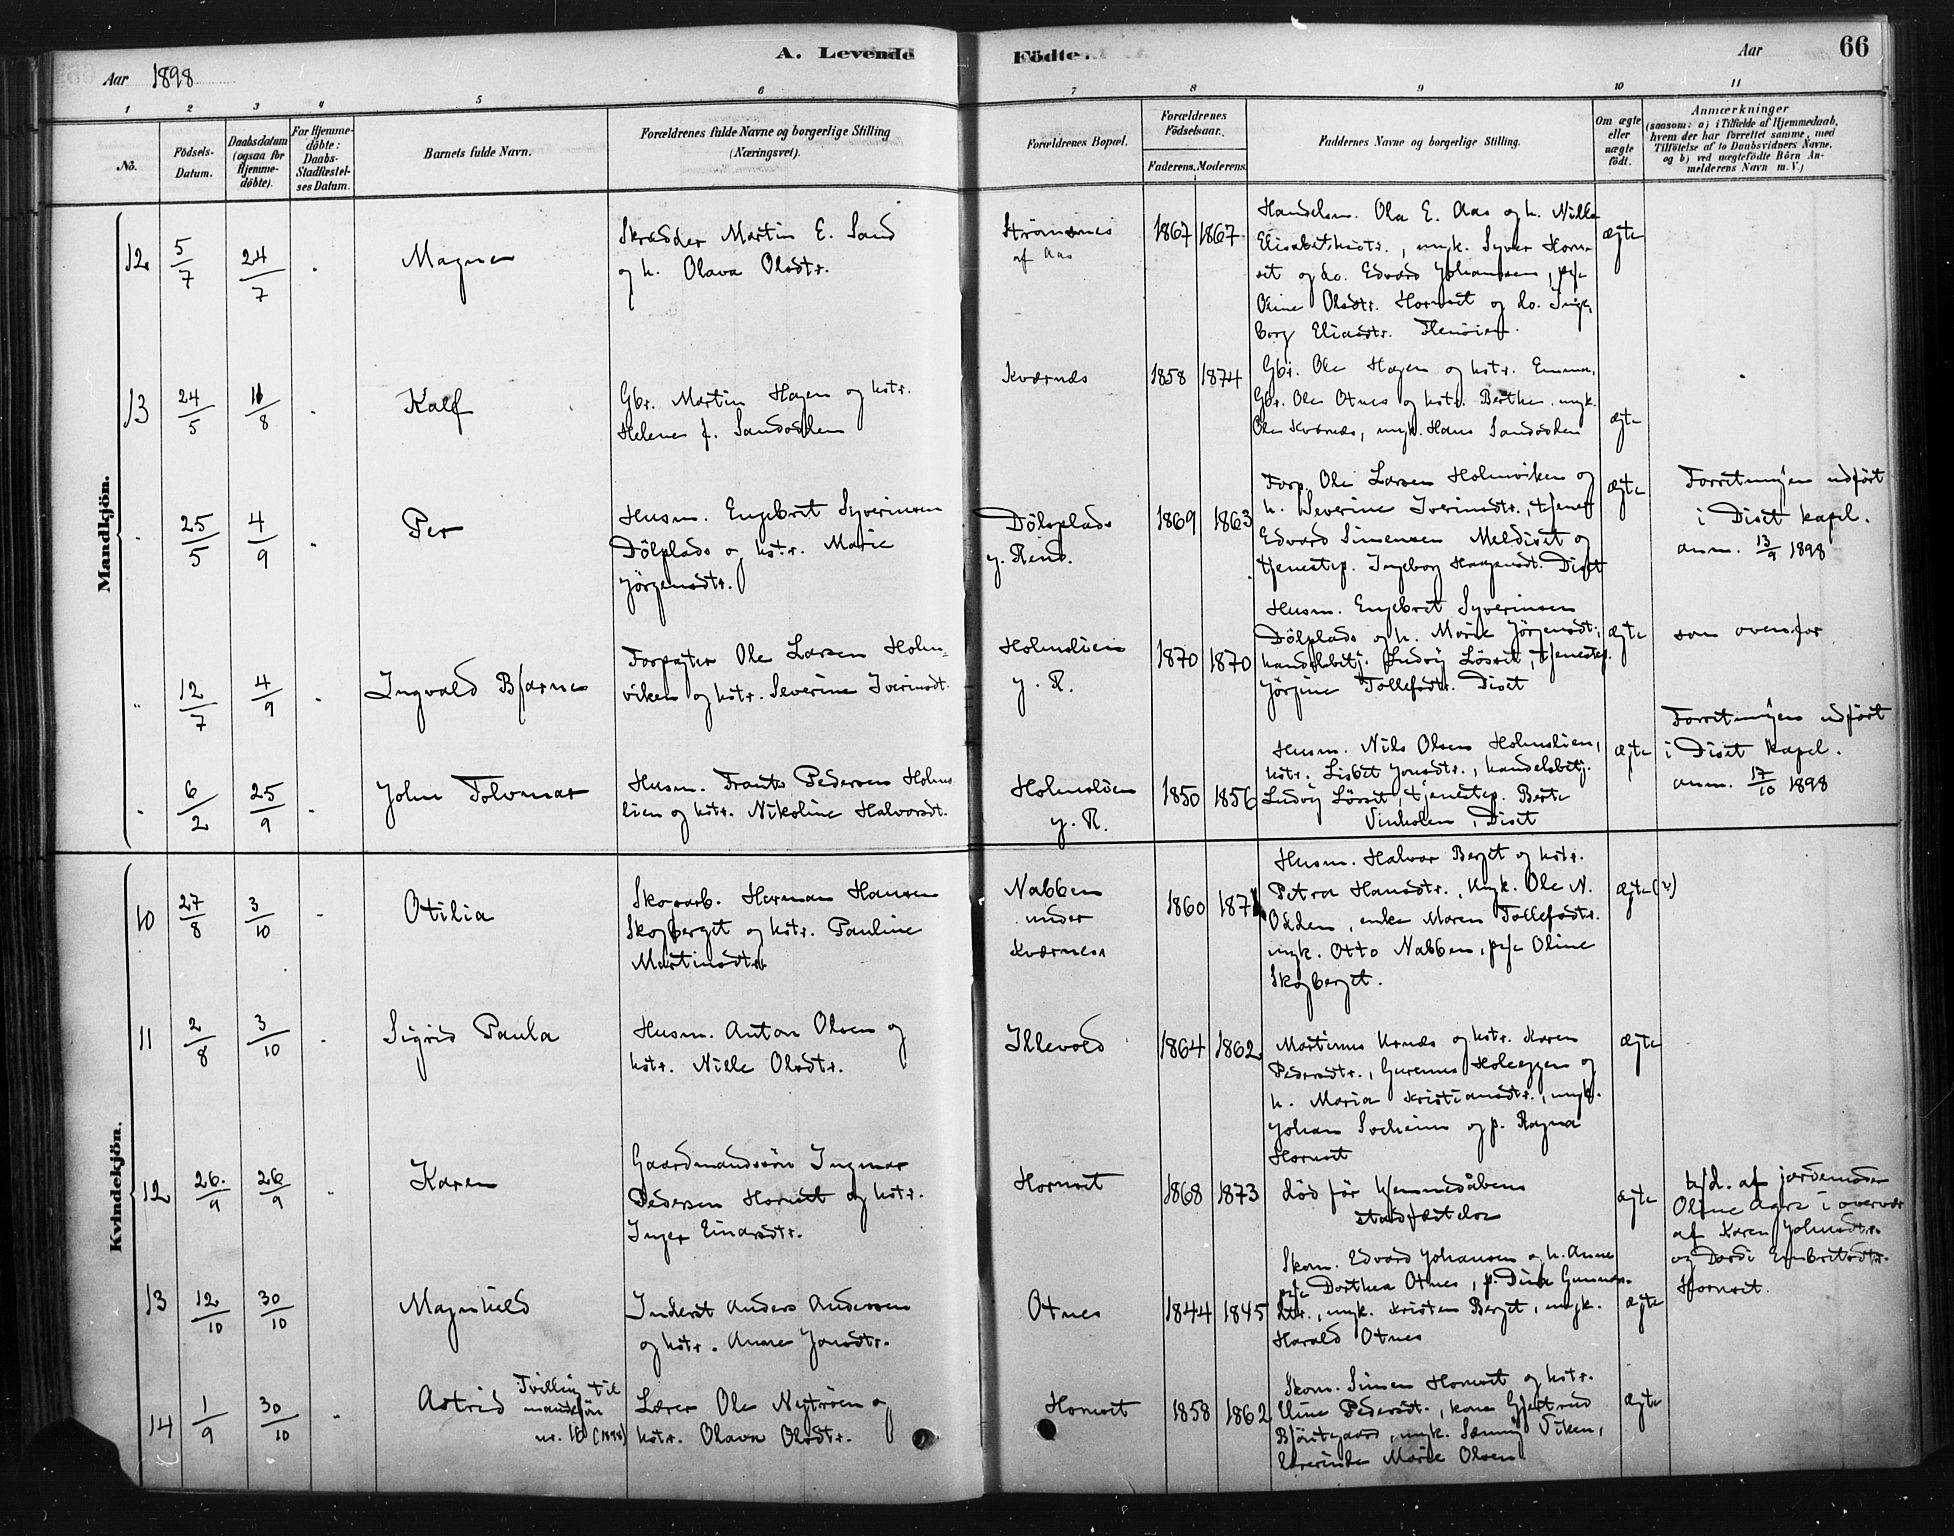 A. Levende Födte.
Aar 1898
Aar
66
1 2 3 4 5 6 7 8 9 10 11
No.
Födsels-Datum.
Daabsdatum (ogsaa for Hjemme-döbte).
For Hjemme-döbte: Daabs-Stadfæstel-ses Datum.
Barnets fulde Navn.
Forældrenes fulde Navne og borgerlige Stilling (Næringsvei).
Forældrenes Bopæl.
Forældrenes Födselsaar.
Faderens. Moderens.
Faddernes Navne og borgerlige Stilling.
Om ægte eller uægte födt.
Anmærkninger
(saasom: a) i Tilfælde af Hjemmedaab, hvem der har forrettet samme, med Tilföielse af to Daabsvidners Navne, og b) ved uægtefödte Börn An-melderens Navn m. V.)
Mandkjön.
12 5/7 24/7 . Magne
Skrædder Martin E. Sand
og h. Olava Olsdtr.
Strömsnes
af Aas
1867 1867
Handelsm. Ola E. Aas og h. Nille
Elisabethsdtr., ungk. Syver Horn-
set og do. Edvard Johansen, pige
Oline Olsdtr. Hornset og do. Inge-
borg Eliasdtr.
ægte
13 24/5 11/8 . Kalf
Gbr. Martin Hagen og kstr.
Helene f. Sandodden
Kværnes
1858 1874
Gbr. Ole Hagen og kstr. Emma,
Gbr. Ole Otnes og kstr. Berthe, ungk.
Ole Kværnes, ungk. Hans Sandodden
ægte
" 25/5 4/9 . Per
Husm. Engebret Syverinsen
Dölplads og kstr. Marie
Jörgensdtr.
Dölsplads
y. Rend.
1869 1863
Forp. Ole Larsen Holmviken og
h. Severine Iverinsdtr., tjenest
Edvard Simensen Meldiset og
tjenestep. Ingeborg Haagensdt. Diset
ægte
Forretningen udfört
i Diset kapel.
anm. 13/9 1898
" 12/7 4/9 . Ingvald Bjarne
Forpagter Ole Larsen Holm-
viken og kstr. Severine Iverinsdt.
Holmslien
y. R.
1870 1870
Husm. Engebret Syverinsen
Dölplads og h. Marie Jörgensdt.,
handelsbetj. Ludvig Lösset, tjenestep.
Jörgine Tollefsdtr. Diset
ægte
som ovenfor
" 6/2 25/9 . John Tolvmar
Husm. Frants Pedersen Holms-
lien og kstr. Nikoline Halvorsdt.
Holmslien
y. R.
1850 1856
Husm. Nils Olsen Holmslien,
kstr. Lisbet Jonsdtr., handelsbetj.
Ludvig Lösset, tjenestep. Berte
Vinholen, Diset
ægte
Forretningen udfört
i Diset kapel.
anm. 17/10 1898
Kvindekjön.
10 27/8 3/10 . Otilia
Skogarb. Herman Hansen
Skogberget og kstr. Pauline
Martinsdtr.
Nabben
under
Kværnes
1860 1871
Husm. Halvor Berget og kstr.
Petra Hansdtr., Ungk. Ole N.
Odden, enke Maren Tollefsdtr.
ungk. Otto Nabben, pige Oline
Skogberget.
ægte (2)
11 2/8 3/10 . Sigrid Paula
Husm. Anton Olsen og
kstr. Nille Olsdtr.
Illevold
1864 1862
Martinus Urnes og kstr. Karen
Pedersdtr., Gurenus Holeggen og
h. Maria Kristiansdtr., ungk.
Johan Socheim og p. Ragna
Hornset
ægte
12 26/9 26/9 " Karen
Gaardmandssön Ingmar
Pedersen Hornset og kstr.
Inger Einarsdtr.
Hornset
1868 1873
död för hjemmedåbens
stadfæstelse
ægte
hjd. af jordemoder
Oline Agre i overvær
af Karen Johnsdtr.
og Dordi Embretsdtr.
Hornset.
13 12/10 30/10 Magnhild
Inderst Anders Andersen
og kstr. Anne Jonsdtr.
Otnes
1844 1845
Skom. Edvard Johansen og h. Anne
pige Dorthea Otnes, p. Dina Gunnars-
dtr., ungk. Kristen Berget, ungk.
Harald Otnes
ægte
14 1/9 30/10 " Astrid
Tvilling til
mandkjön
nr. 16 (1898)
Lærer Ole Nytröen og
kstr. Olava Olsdtr.
Hornset
1858 1862
Skom. Simen Hornset og kstr.
Eline Pedersdt., kone Gjertrud
Bjöntegaard, ungk. Sæming Viken,
lærerinde Marie Olsen
ægte